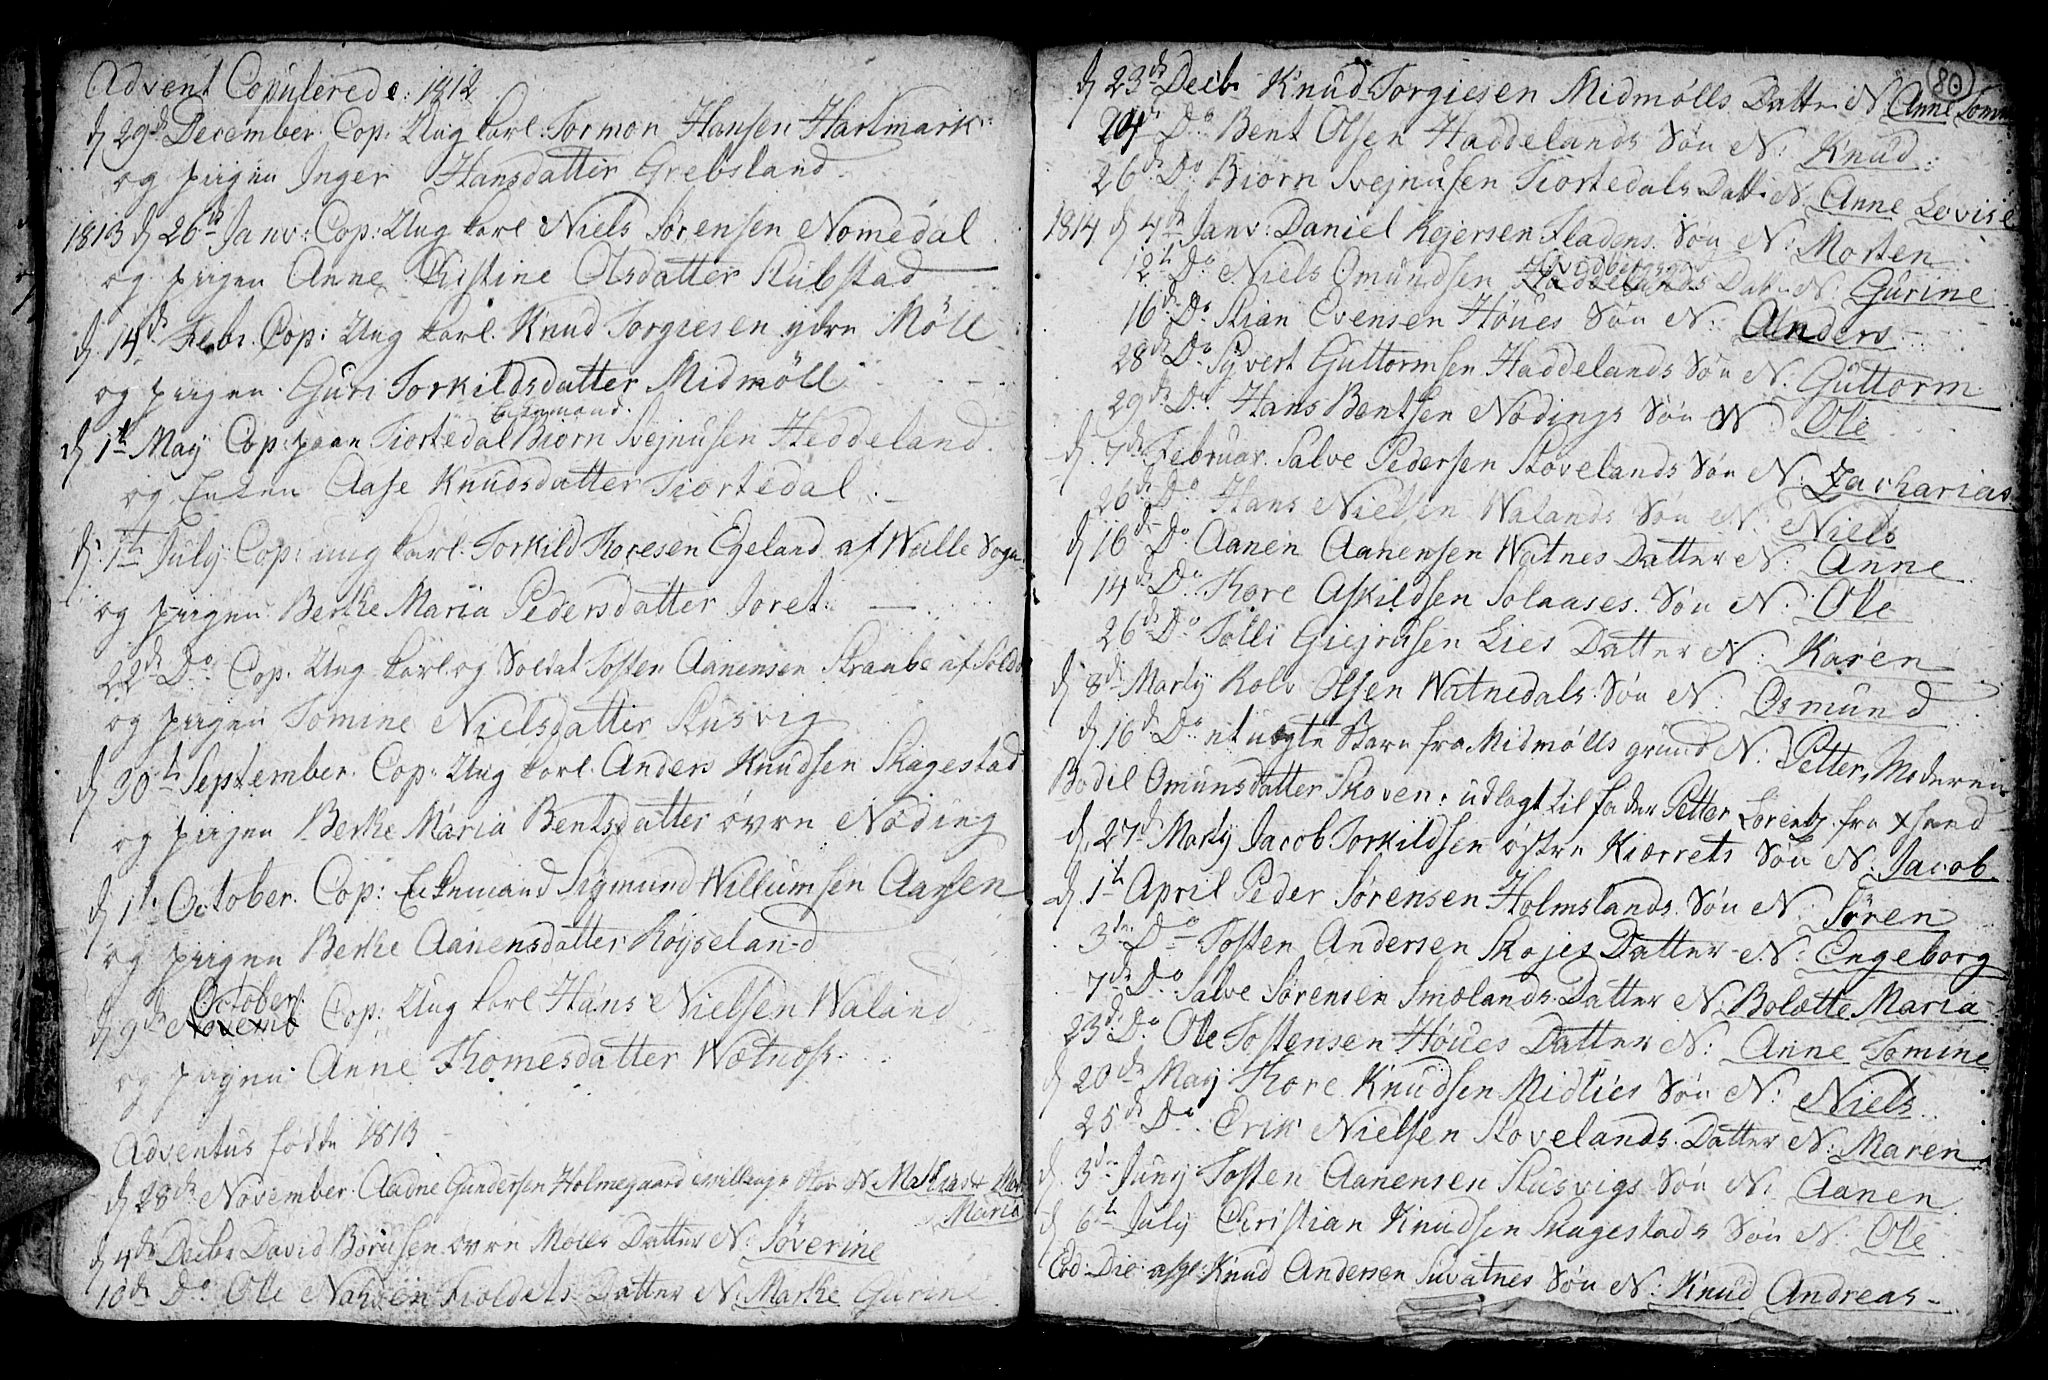 Advent Copulerede: 1812
d 29de December. Cop: Ung karl: Tormon Hansen Hartmark
og pigen Inger Hansdatter Grebsland
1813 d 26de Janv: Cop: Ung karl Niels Sørensen Nomedal
og pigen Anne Kistine Olsdatter Stubstad
d 14de Febr. Cop: Ung karl. Knud Torgiesen ydre Möll
og pigen Guri Torkildsdatter Midmöll
Enkemand.
d 1te May Cop: paa Tiortedal Biørn Svejnusen Heddeland
og Enken Aase Knudsdatter Tiortedal
d 1te July Cop: ung karl: Torkild Toresen Egeland af Walle Sogn
og pigen Berthe Maria Pedersdatter Joret
22de Do Cop. Ung karl og Soldat Tosten Aanensen Straabe af
og pigen Tomine Nielsdatter Stusvig
d 30te September. Cop: Ung karl. Anders Knudsen Skagestad
og pigen Berthe Maria Bentsdatter övre Nøding
d 1te October. Cop: Enkemand Sigmund Willumsen Aasen
og pigen Berthe Aanensdatter Røyseland
October.
d 9de Novemb Cop: Ung karl Hans Nielsen Waland
og pigen Anne Thomesdatter Watnøs
Adventus fødte 1813
d 28de November. Aadne Gundersen Holmegaard N. Mathias &
Maria
d 4de Decbr David Børusen övre Møls Datter N: Søverine
10de Do Ole Fioldets Datter N: Marthe Gurine
80
d 23de Decbr Knud Torgiesen Midmølls Datter N: Anne
24de Do Bent Olsen Haddelands Søn N: Knud
26de Do Biørn Svejnusen Tiortedals Datt: N: Anne Lovise
1814 d 4de Janv: Daniel Rejersen Fladens Søn N: Morten
12te Do Niels Omundsen Haddelands Datt: N: Gurine
16de Do Stian Evensen Høyes Søn N: Anders
28de Do Syvert Guttormsen Haddelands Søn N: Guttorm
29de Do Hans Bentsen Nødings Søn N: Ole
d 7de Februar. Salve Pedersen Stovelands Søn N: Zacharias
26de Do Hans Nielsen Walands Søn N: Niels
d 16de Do Aanen Aanensen Watnes Datter N: Anne
14de Do Tore Askildsen Solaases Søn N: Ole
26de Do Tolli Giejrusen Lies Datter N: Karen
d 8de Marty Rolv Olsen Watnedals Søn N: Osmund
d 16de Do et uegte Barn fra Midmølls grund N: Petter, Moderen
Bodil Omunsdatter Skoven. udlagt til fader Petter Lorentz fra Xsand
d 27de Marty Jacob Torkildsen østre Kiærrets Søn N: Jacob
d 1te April Peder Sørensen Holmslands Søn N: Søren
3die Do Tosten Andersen Skojes Datter N: Engeborg
7de Do Salve Sørensen Smælands Datter N: Bolætte Maria
23de Do Ole Tostensen Høyes Datter N: Anne Tomine
d 20de May Tore Knudsen Midlies Søn N: Niels
25de Do Erik Nielsen Stovelands Datter N: Maren
d 3die Juny Tosten Aanensen Stusvigs Søn N: Aanen
d 6te July Christian Knudsen Skagestads Søn N: Ole
Eod: Die Knud Andersen Suvatnes Søn N: Knud Andreas